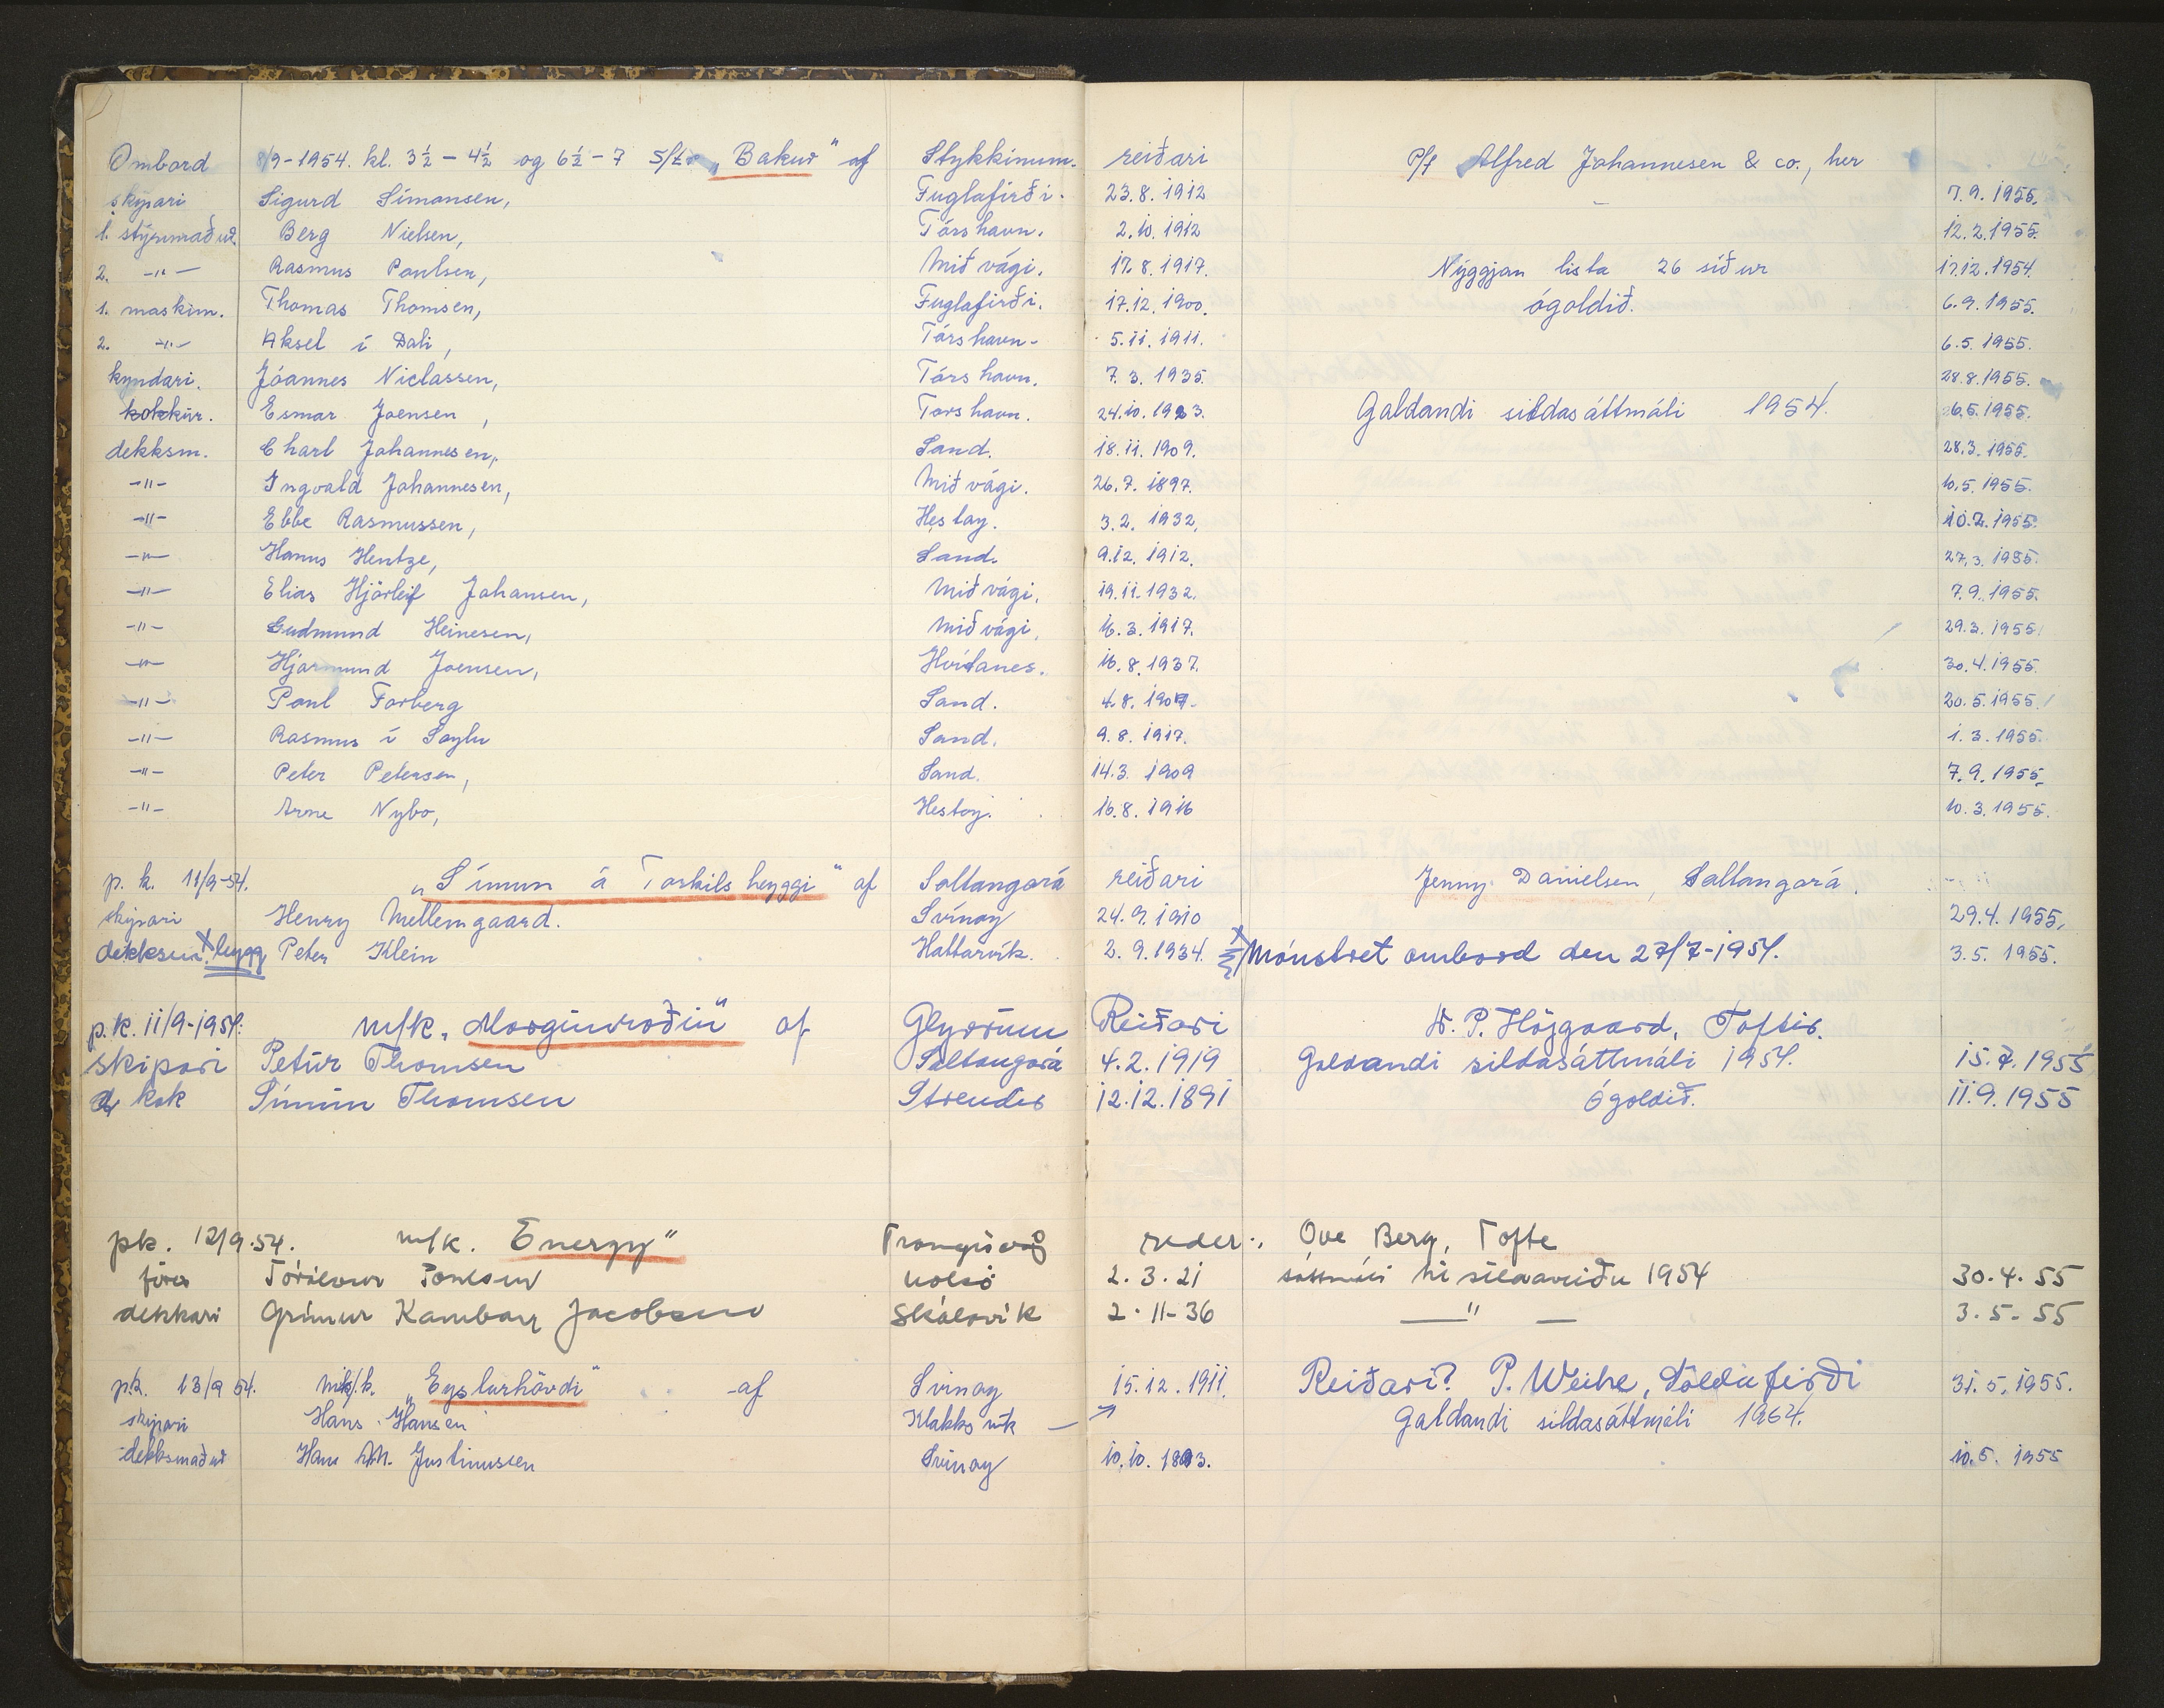 Ombord 8/9-1954. kl. 3½ - 4½ og 6½-7 S/tr „Bakur" af Stykkinum. reiðari P/f Alfred Johannesen & co., her
skipari Sigurd Simonsen, Fuglafirði. 23.8.1912 7.9.1955.
1. stýrimaður. Berg Nielsen, Tórshavn. 2.10.1912 12.2.1955.
2. -"- Rasmus Poulsen, Miðvági. 17.8.1917. Nýggjan lista 26 síður 17.12.1954.
1. maskim. Thomas Thomsen, Fuglafirði. 17.12.1900. ógoldið. 6.9.1955.
2. -"- Aksel í Dali, Tórshavn. 5.11.1911. 6.5.1955.
kyndari. Jóannes Niclassen, Tórshavn. 7.3.1935. 28.8.1955.
kokkur. Esmar Joensen, Torshavn. 24.10.1923. Galdandi sildasáttmáli 1954. 6.5.1955.
dekksm. Charl Johannesen, Sand. 18.11.1909. 28.3.1955.
-"- Ingvald Johannesen, Miðvági. 26.7.1897. 10.5.1955.
-"- Ebbe Rasmussen, Hestoy. 3.2.1932. 10.2.1955.
-"- Hanus Hentze, Sand. 9.12.1912. 27.3.1955.
-"- Elias Hjörleif Johansen, Miðvági. 19.11.1932. 7.9.1955.
-"- Gudmund Heinesen, Miðvági. 16.3.1917. 29.3.1955
-"- Hjarmund Joensen, Hvítanes. 16.8.1937. 30.4.1955.
-"- Poul Forberg Sand. 4.8.1907. 20.5.1955.
-"- Rasmus í Soylu Sand. 9.8.1917. 1.3.1955.
-"- Peter Petersen, Sand. 14.3.1909 7.9.1955.
-"- Arne Nybo, Hestoy. 16.8.1916 10.3.1955.
p. k. 11/9-54. „Símun á Torkilsheyggi" af Saltangará reiðari Jenny Danielsen, Saltangará.
skipari Henry Mellemgaard. Svínoy 24.9.1910 29.4.1955.
dekksm. Peter Klein Hattarvík. 2.9.1934. X Mónstret ombord den 27/7-1954. 3.5.1955.
p.k. 11/9-1954: m/k. „Morgunroðin" af Glyvrum Reiðari P. Højgaard, Toftir.
skipari Petur Thomsen Saltangará 4.2.1919 Galdandi sildasáttmáli 1954. 15.7.1955
kok Símun Thomsen Strendur 12.12.1891 Ógoldið. 11.9.1955
pk. 12/9.54. m/k. Energy" Trongisvág reder:, Ove Berg, Tofte
fører Poulsen Nolsó 2.3.21 sáttmáli 1954 30.4.55
dekkari Grímur Kamban Jacobsen Skálavík 2.11-36 -"- 3.5-55
p.k. 13/9 54. m/k. „Eysturhövdi" af Svinoy 15.12.1911. Reiðari? P. Weihe, Söldafirði 31.5.1955.
skipari Hans Hansen Klakksvík Galdandi sildasáttmáli 1964.
dekksmaður Hans M. Justinussen Svinoy 10.10.1893. 10.5.1955